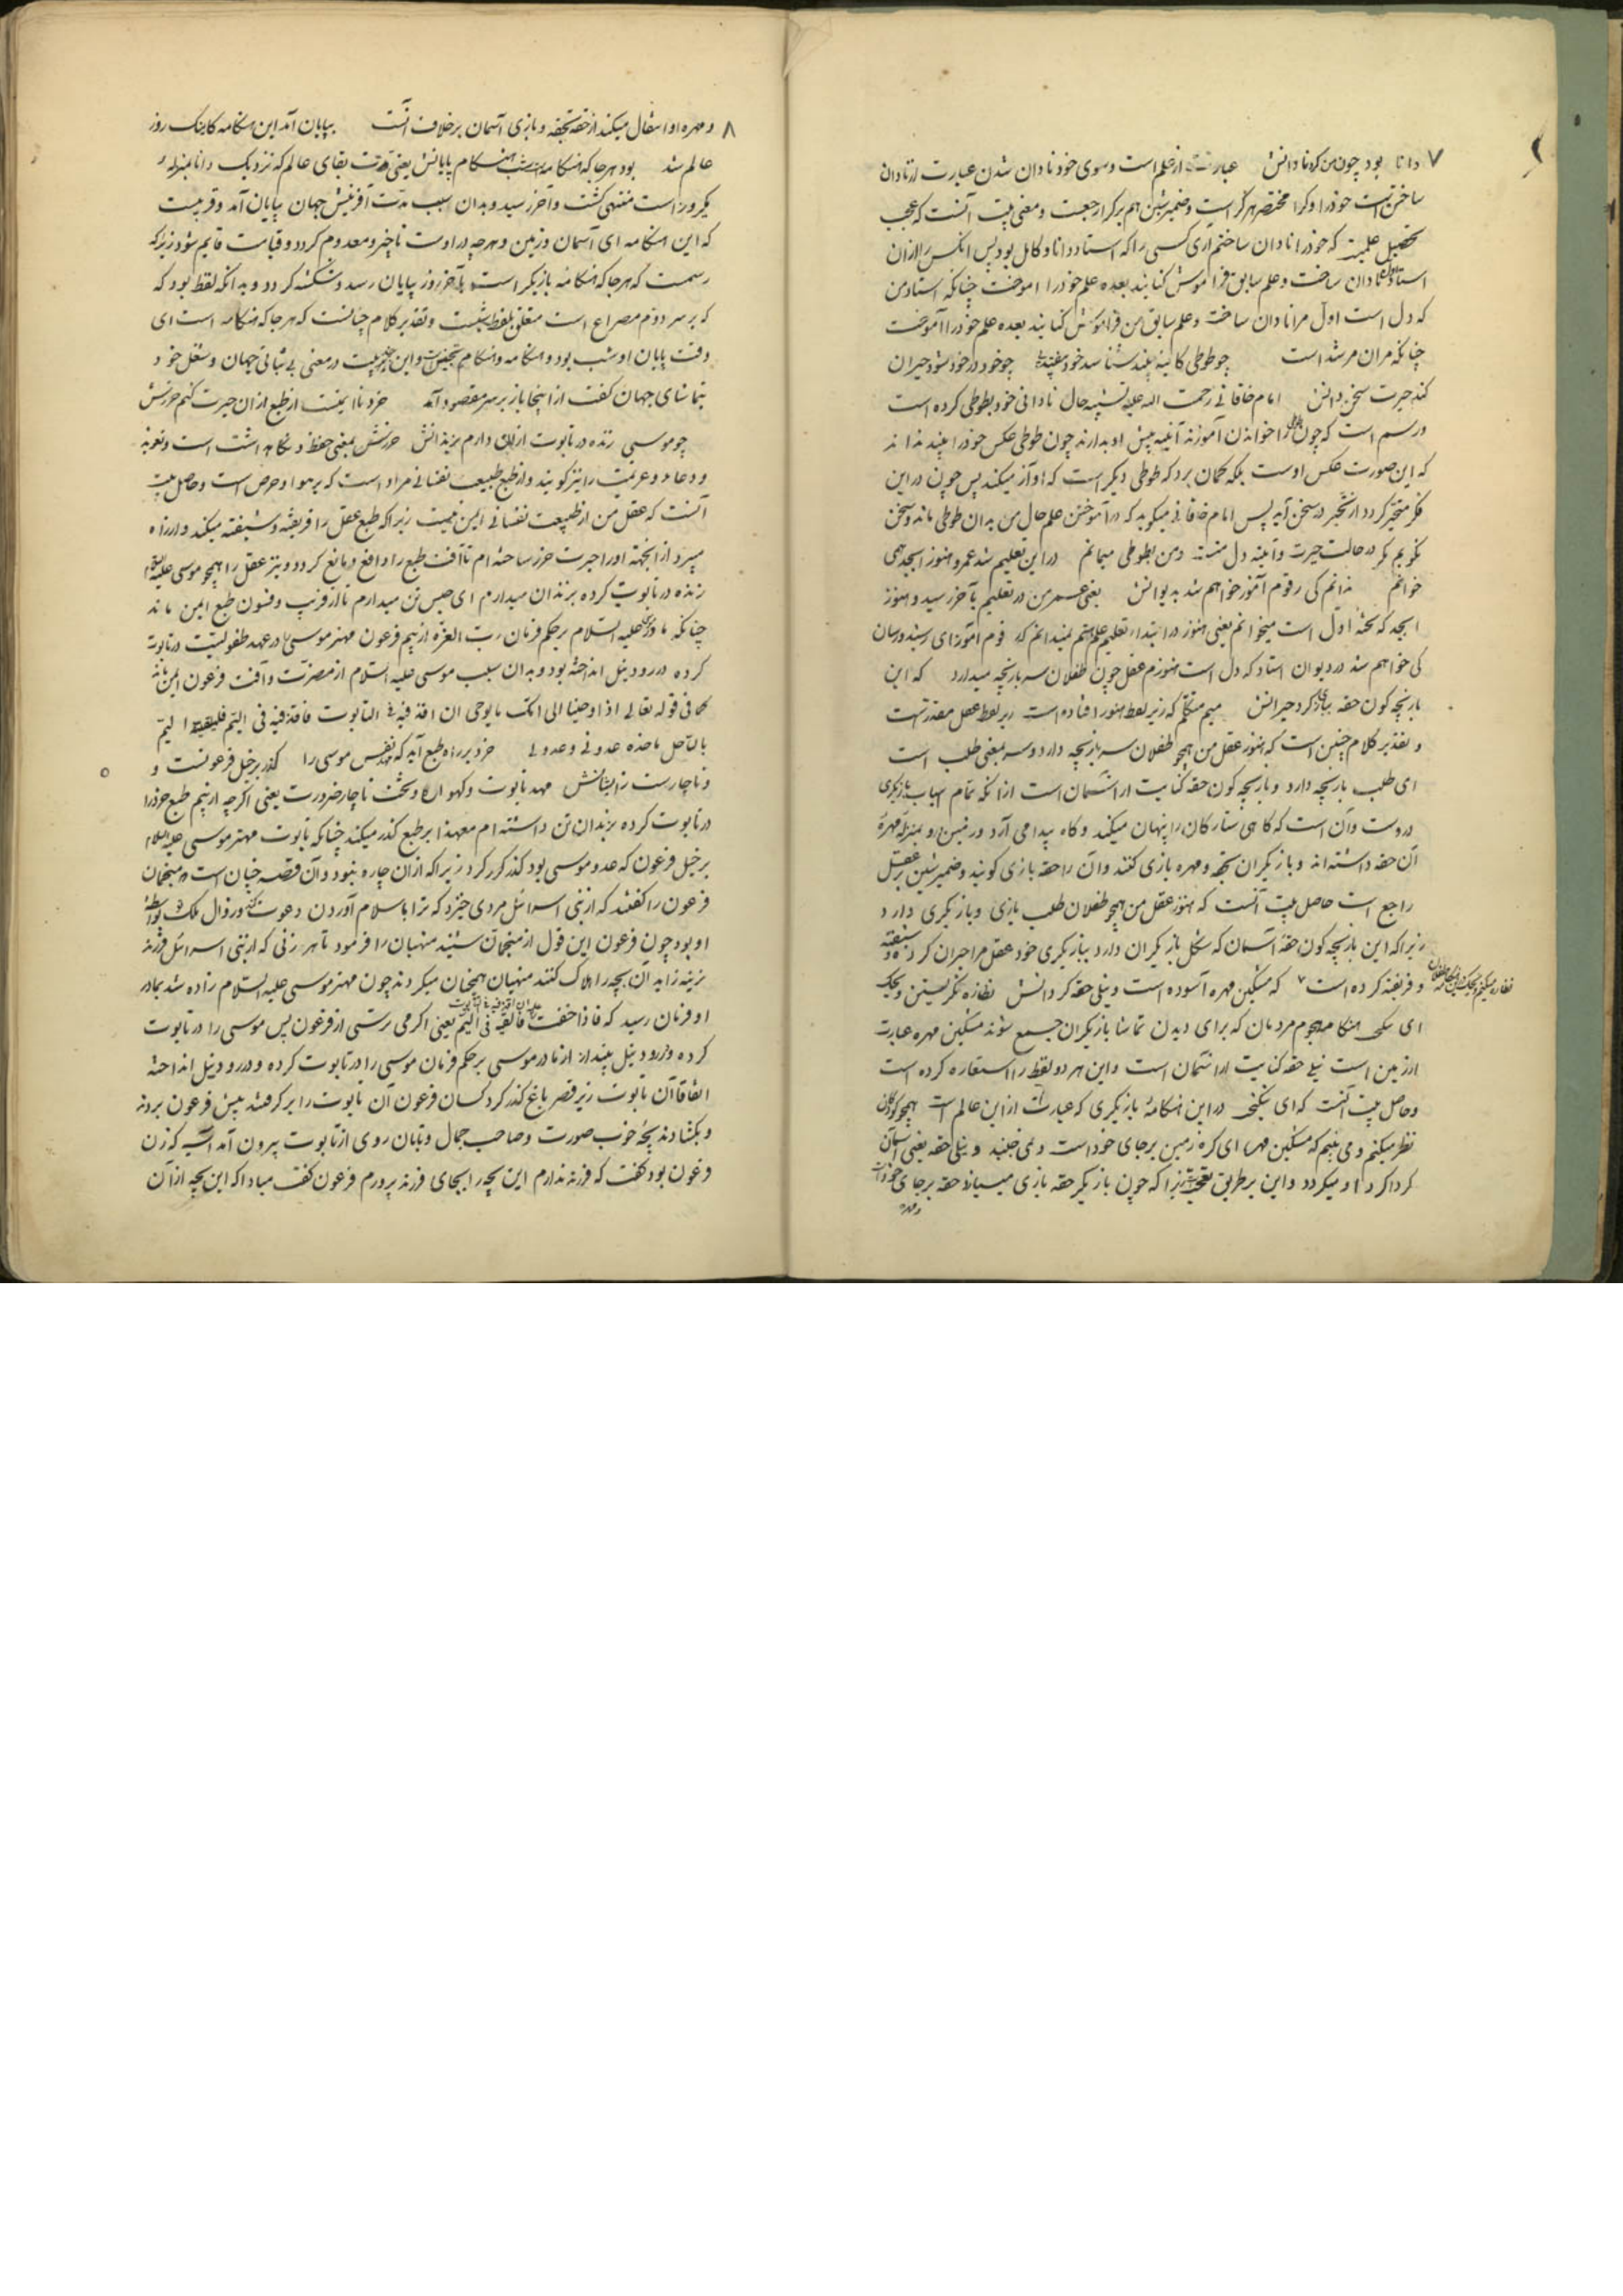 ۷ دانا بود چون من کرد نادانش عبارت از علم است و سوی خود نادان شدن عبارت از نادان
ساختن است خود را و کرا مختصر هر کرا است و ضمیر شین هم بر کرا راجعست و معنی بیت آنست که عجب
تحصیل علمیست که خود را نادان ساختم آری کسی را که استاد دانا و کامل بود پس آنکس را از آن
استاد اول نادان ساخت و علم سابق فراموش کنانید بعده علم خود را آموخت چنانکه استاد من
که دل است اول مرا نادان ساخت و علم سابق من فراموش کنانید بعده علم خود را آموخت
چنانکه مران مرشد است چو طوطی کاینه بیند شناسد خود بیفتد چو خود در خود شود حیران
کند حیرت سخن دانش امام خاقانی رحمت الله علیه تشبیه حال نادانی خود بطوطی کرده است
و رسم است که چون طوطی را خواندن آموزند آئینه پیش او بدارند چون طوطی عکس خود را بیند نداند
که این صورت عکس اوست بلکه گمان برد که طوطی دیگر است که آواز میکند پس چون در این
فکر متحیر گردد از تحیر در سخن آید پس امام خاقانی میگوید که در آموختن علم حال من بدان طوطی ماند و سخن
نگویم مگر در حالت حیرت و آئینه دل منست و من بطوطی میمانم در این تعلیم شد عمر و هنوز ابجد همی
خوانم ندانم کی رقوم آموز خواهم شد بدیوانش یعنی عمر من در تعلیم بآخر رسید و هنوز
ابجد که تخته اول است میخوانم یعنی هنوز در ابتداء تعلیم علم هستم نمیدانم که رقوم آموز ای رسیده رسان
کی خواهم شد در دیوان استاد که دل است هنوزم عقل چون طفلان سر بازیچه میدارد که این
بازیچه گون حقه ببازی کرد حیرانش میم متکلم که زیر لفظ هنوز افتاده است زیر لفظ عقل مقدرست
و تقدیر کلام چنین است که هنوز عقل من همچو طفلان سر بازیچه دارد و سر بمعنی طلب است
ای طلب بازیچه دارد و بازیچه گون حقه کنایت از آسمان است از آنکه تمام اسباب بازیگری
در وست و آن است که گاهی ستارگان را پنهان میکند و گاه پیدا می آرد و زمین را و بمنزله مهره
آن حقه داشته اند و بازیگران بحقه و مهره بازی کنند و آن را حقه بازی گویند و ضمیر شین بر عقل
راجع است حاصل بیت آنست که هنوز عقل من همچو طفلان طلب بازی و بازیگری دارد
زیرا که این بازیچه گون حقه آسمان که شکل بازیگران دارد ببازیگری خود عقل مرا حیران کرد و شیفته
و فریفته کرده است که مشکین مهره آسوده است و نیلی حقه گردانش نظاره نگریستن و یحک
ای نیکی هنگامه هجوم مردمان که برای دیدن تماشا بازیگران جمع شوند مشکین مهره عبارت
از زمین است نیلی حقه کنایت از آسمان است و این هر دو لفظ را استعاره کرده است
و حاصل بیت آنست که ای نیکی در این هنگامهٔ بازیگری که عبارت از این عالم است همچو کودکان
نظر میکنم و می بینم که مشکین مهره ای کره زمین بر جای خود است و نمی جنبد و نیلی حقه یعنی آسمان
گرداگرد او میگردد و این بر طریق تعجبست زیرا که چون بازیگر حقه بازی میسازد حقه بر جای خود است
و مهره
۸ و مهره او انتقال میکند از حقه بحقه و بازی آسمان بر خلاف آنست بپایان آمد این هنگامه کاینک روز
عالم شد بود هر جا که هنگامه است شب هنگام پایانش یعنی مدت بقای عالم که نزدیک دانا بمنزله
یکروز است منتهی گشت و آخر رسید و بدان سبب مدت آفرینش جهان بپایان آمد و قریبست
که این هنگامه ای آسمان و زمین و هر چه در اوست ناچیز و معدوم گردد و قیامت قایم شود زیرا که
رسمست که هر جا که هنگامه بازیگر است بآخر روز بپایان رسد و شکسته گردد و بدانکه لفظ بود که
که بر سر دوم مصراع است متعلق بلفظ شبست و تقدیر کلام چنانست که هر جا که هنگامه است ای
وقت پایان او شب بود و هنگامه و هنگام تجنیس است و این چند بیت در معنی بی ثباتی جهان و شغل خود
بتماشای جهان گفت از اینجا باز بر سر مقصود آمد خرد نا ایمنست از طبع از آن حرزش کنم حرزش
چو موسی زنده در تابوت از آن دارم بزندانش حرزش بمعنی حفظ و نگاه داشت است و تعویذ
و دعا و عزیمت را نیز گویند و از طبع طبیعت نفسانی مراد است که بر هوا و حرص است و حاصل بیت
آنست که عقل من از طبیعت نفسانی ایمن نیست زیرا که طبع عقل را فریفته و شیفته میکند و از راه
میبرد از آنجهة او را حرز ساخته ام تا آفت طبع را دافع و مانع گردد و نیز عقل را همچو موسی علیه السلام
زنده در تابوت کرده بزندان میدارم ای حبس تن میدارم تا از فریب و فسون طبع ایمن ماند
چنانکه مادر موسی علیه السلام بر حکم فرمان رب العزه از بیم فرعون مهتر موسی را در عهد طفولیت در تابوت
کرده در رود نیل انداخته بود و بدان سبب موسی علیه السلام از مضرت و آفت فرعون ایمن ماند
کما فی قوله تعالی اذا وحینا الی امک ما یوحی ان اقذفیه فی التابوت فاقذفیه فی الیم فلیلقه الیم
بالساحل یاخذه عدو لی و عدو له خرد بر راه طبع آید که مهد نفس موسی را گذر بر خیل فرعونست و
و ناچارست زایشانش مهد تابوت و گهواره و تخت ناچار ضرورت یعنی اگر چه از بیم طبع خرد را
در تابوت کرده بزندان تن داشته ام معهذا بر طبع گذر میکند چنانکه تابوت مهتر موسی علیه السلام
بر خیل فرعون که عدو موسی بود گذر کرد زیرا که از آن چاره نبود و آن قصه چنان است که منجمان
فرعون را گفتند که از بنی اسرائیل مردی خیزد که ترا باسلام آوردن دعوت کند و زوال ملک تو بواسطهٔ
او بود چون فرعون این قول از منجمان شنید منهیان را فرمود تا هر زنی که از بنی اسرائیل فرزند
نرینه زاید آن بچه را هلاک کنند منهیان همچنان میکردند چون مهتر موسی علیه السلام زاده شد بمادر
او فرمان رسید که فاذا خفت علیه فالقیه فی الیم یعنی اگر می ترسی از فرعون پس موسی را در تابوت
کرده در رود نیل بینداز از مادر موسی بر حکم فرمان موسی را در تابوت کرده و در رود نیل انداخته
اتفاقا آن تابوت زیر قصر باغ گذر کرد کسان فرعون آن تابوت را بر گرفتند پیش فرعون بردند
و بکشادند بچه خوب صورت و صاحب جمال و تابان روی از تابوت بیرون آمد آسیه که زن
فرعون بود گفت که فرزند ندارم این بچه را بجای فرزند پرورم فرعون گفت مبادا که این بچه از آن